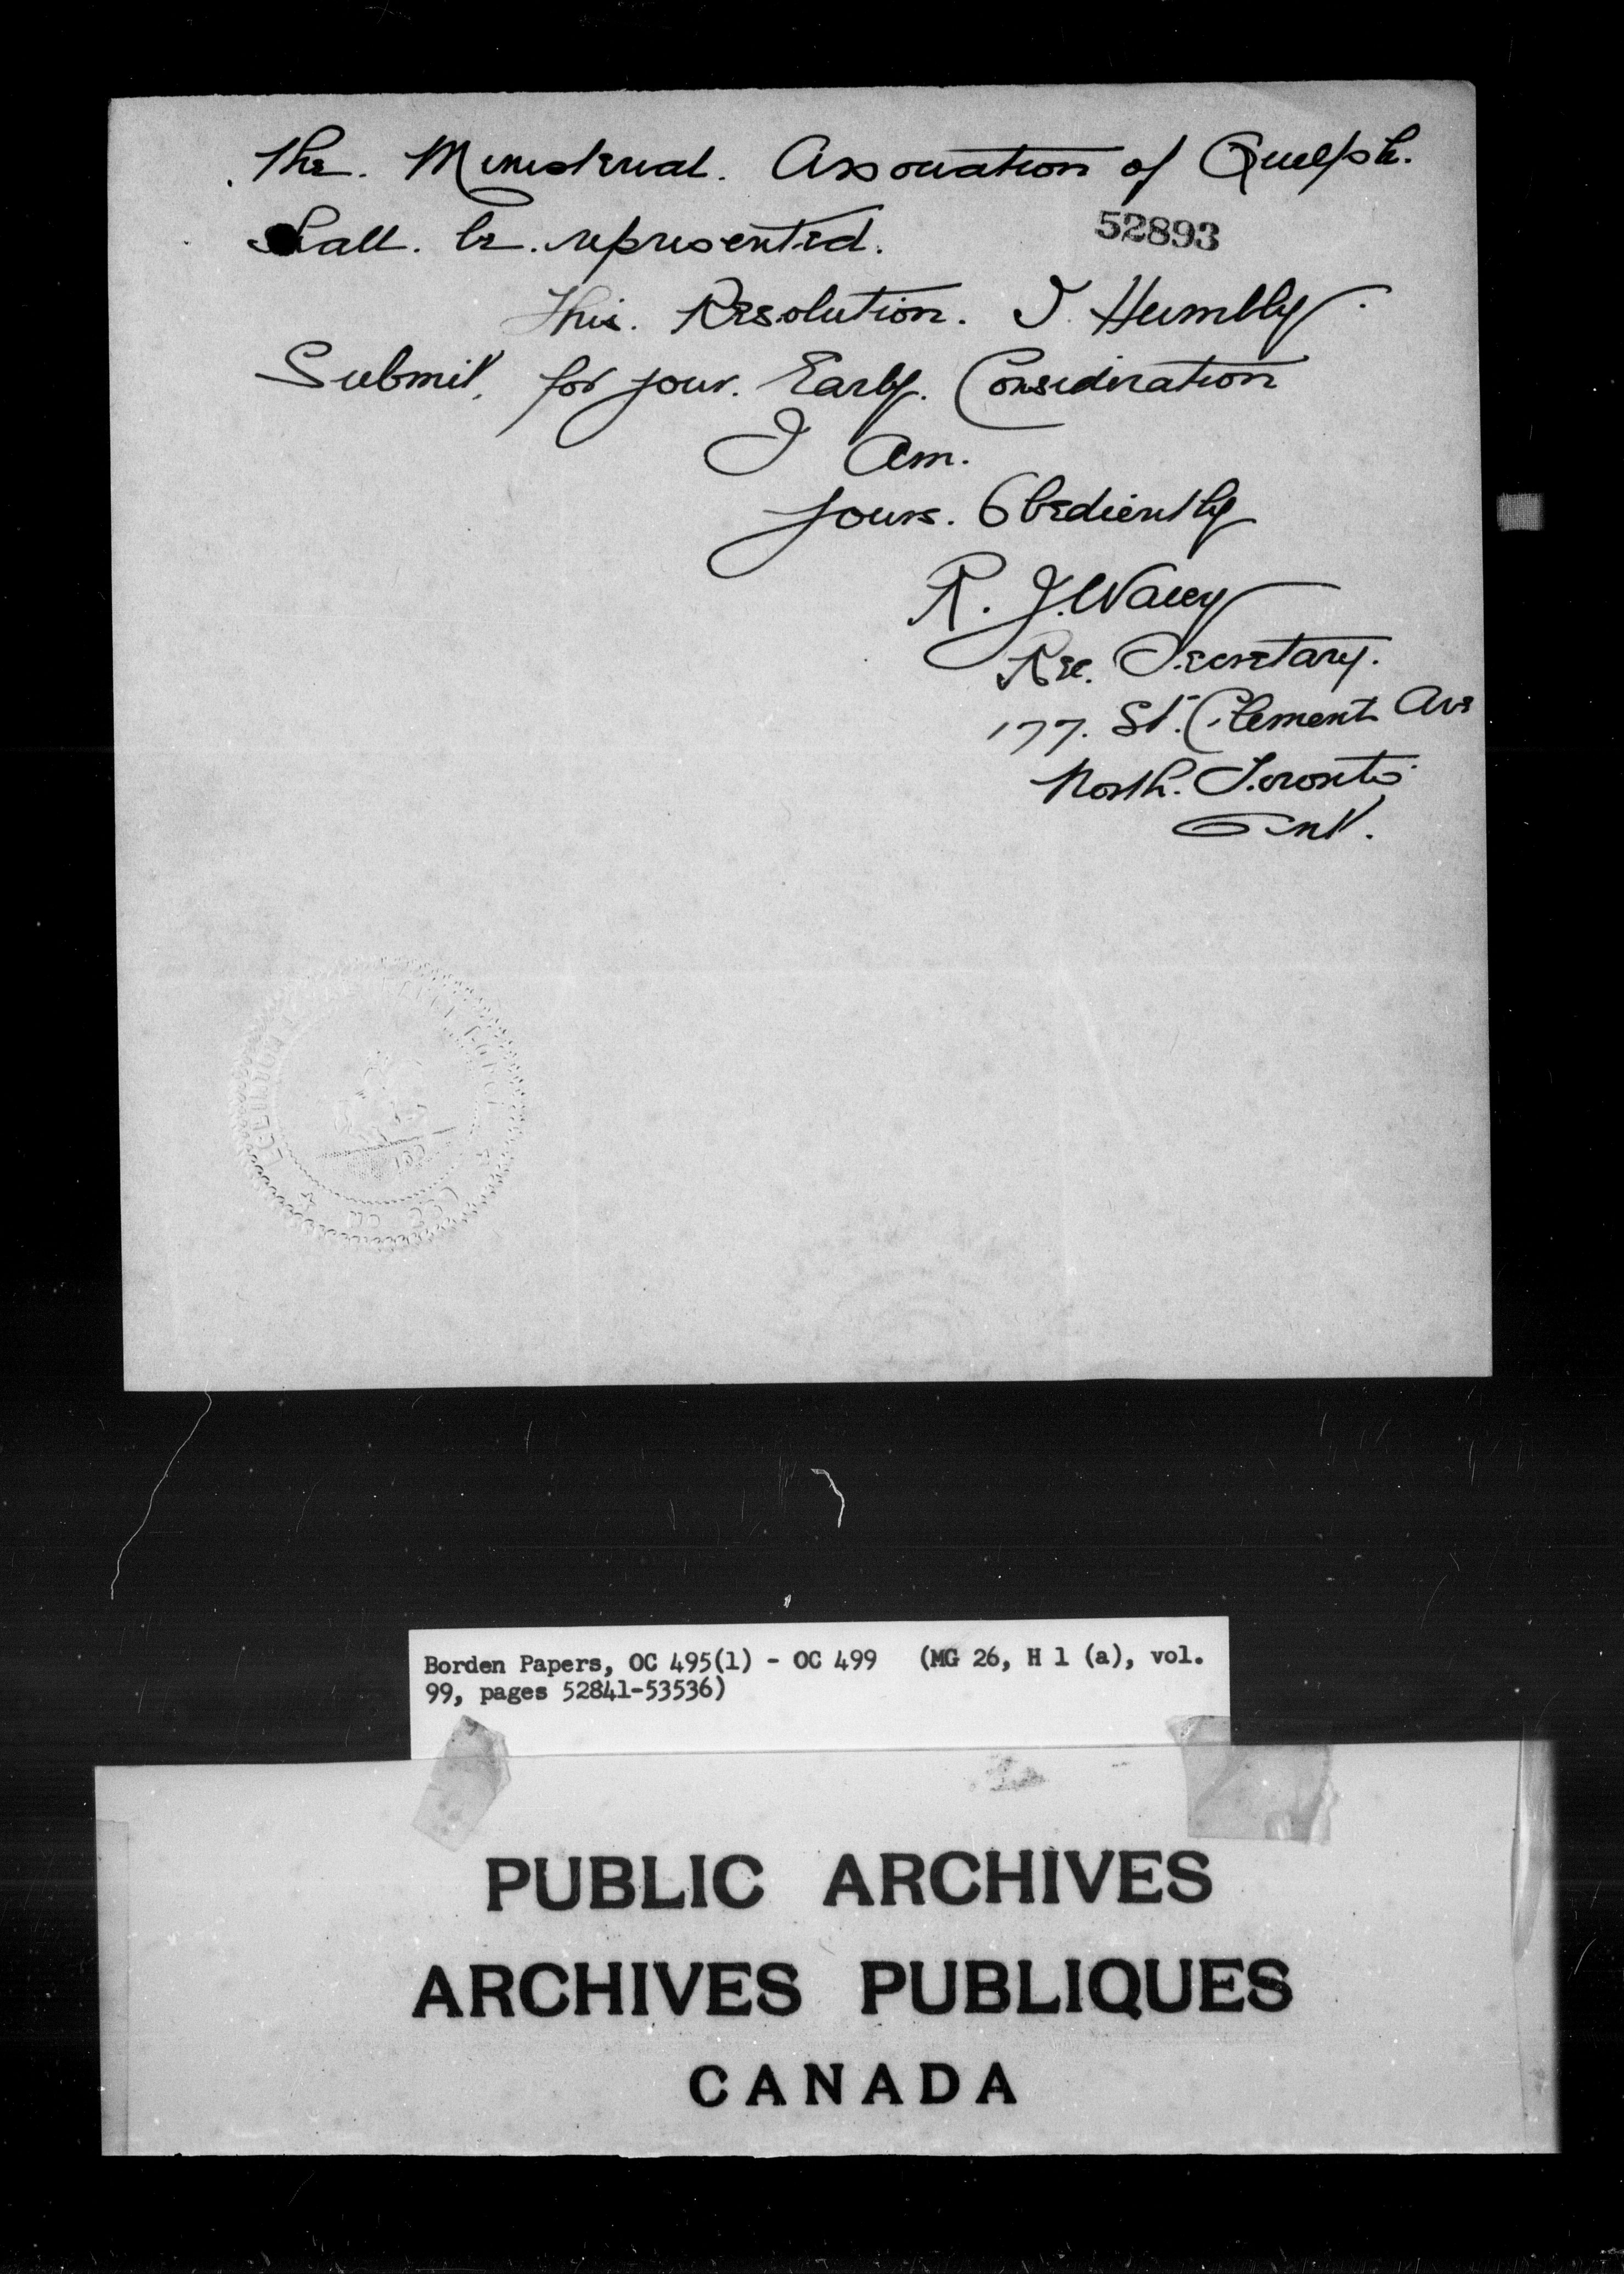 The. Ministerial. Association of Guelph.
Shall. be. represented.
52893
This. Resolution. I. Humbly.
Submit, for your. Early. Consideration
I Am.
yours. Obediently
R. J. Wacey
Rec. Secretary.
177. St. Clement Ave
North. Toronto.
Ont.
Borden Papers, OC 495(1) - OC 499 (MG 26, H 1 (a), vol.
99, pages 52841-53536)
PUBLIC ARCHIVES
ARCHIVES PUBLIQUES
CANADA